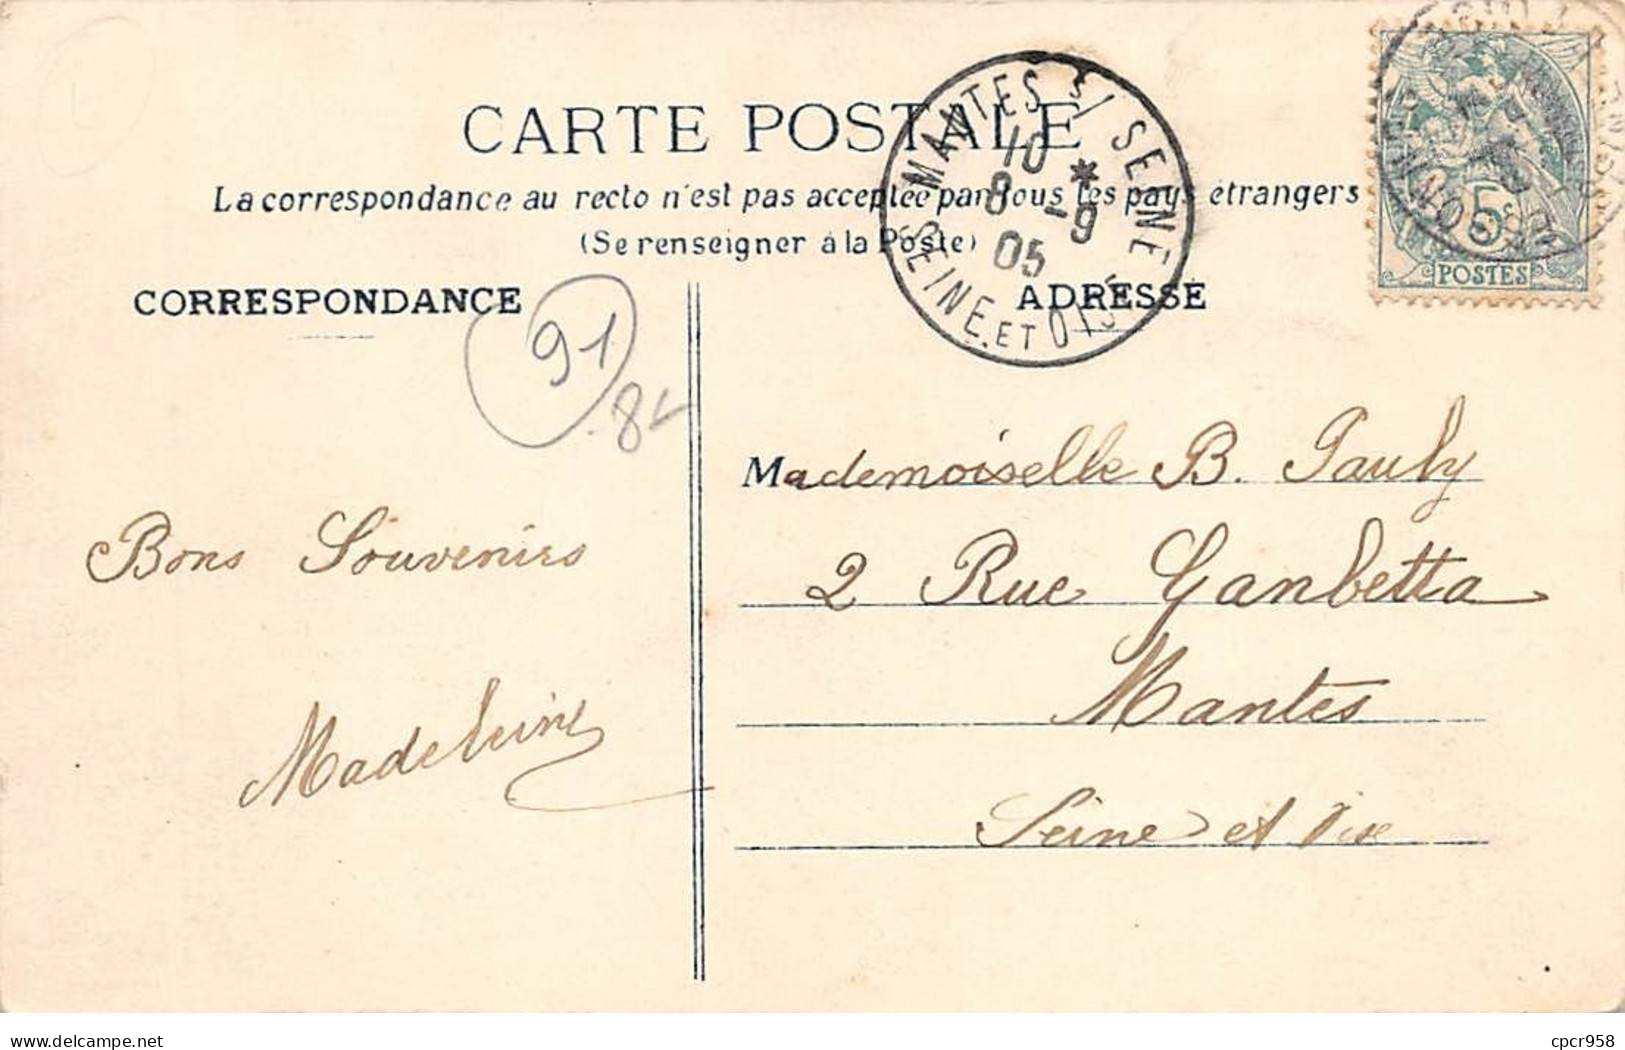 CARTE POSTALE
La correspondance au recto n'est pas acceptée par tous les pays étrangers
(Se renseigner à la Poste)
MANTES S/ SEINE
10 *
8 -9
05
SEINE ET OISE
5c
POSTES
CORRESPONDANCE
ADRESSE
91
82
Mademoiselle B. Pauly
2 Rue Ganbetta
Mantes
Seine et Oise
Bons Souvenirs
Madeleine
delcampe.net
cpcr958